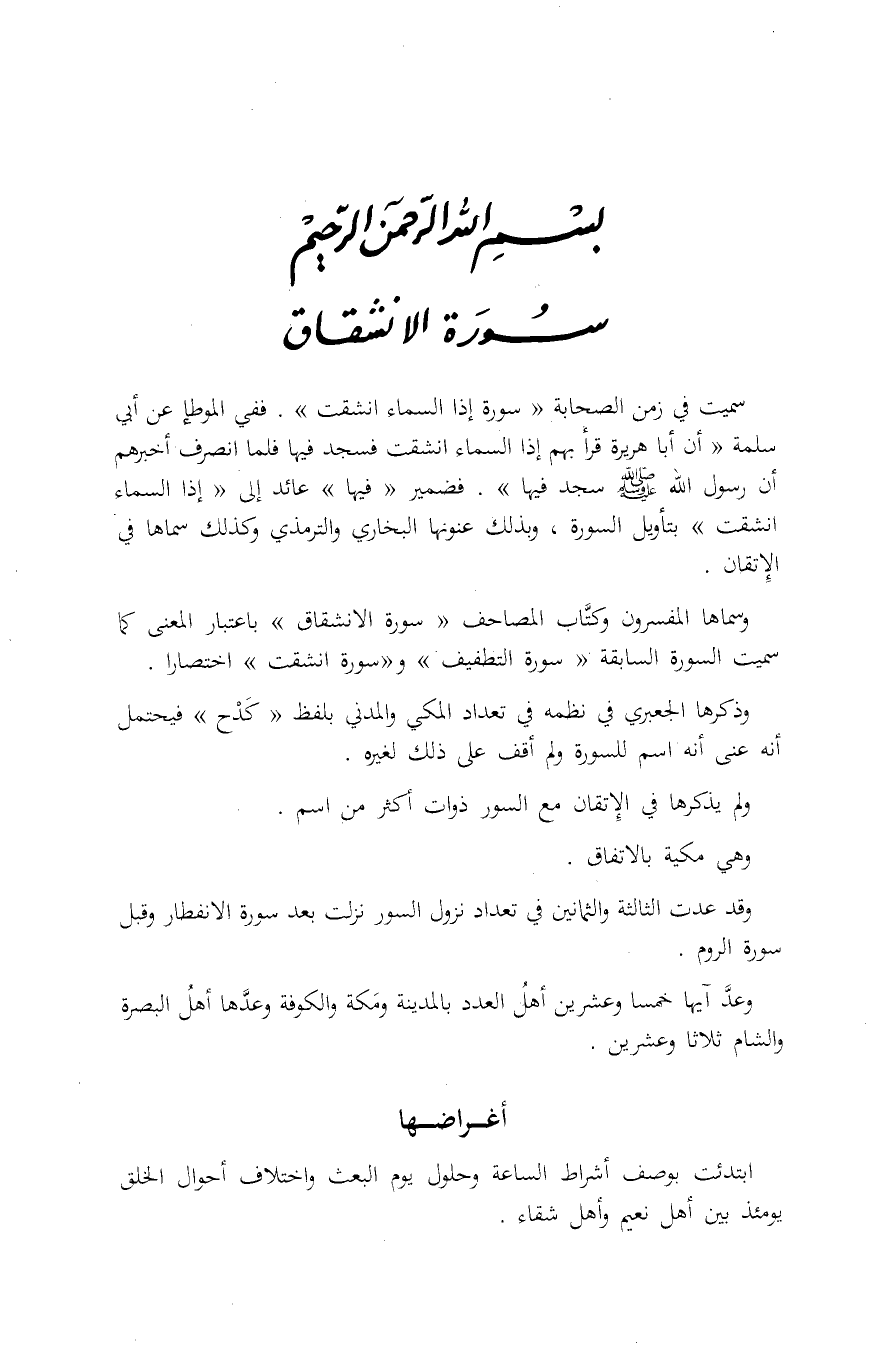 بسْمِ الله الرّحمنَ الرّحيمْ
سُورَة الانشقاق
سميت في زمن الصحابة « سورة إذا السماء انشقت » . ففي الموطإ عن أبي
سلمة « أن أبا هريرة قرأ بهم إذا السماء انشقت فسجد فيها فلما انصرف أخبرهم
أن رسول الله ﷺ سجد فيها » . فضمير « فيها » عائد إلى « إذا السماء
انشقت » بتأويل السورة ، وبذلك عنونها البخاري والترمذي وكذلك سماها في
الإتقان .
وسماها المفسرون وكتَّاب المصاحف « سورة الانشقاق » باعتبار المعنى كما
سميت السورة السابقة « سورة التطفيف » و«سورة انشقت » اختصارا .
وذكرها الجعبري في نظمه في تعداد المكي والمدني بلفظ « كَدْح » فيحتمل
أنه عنى أنه اسم للسورة ولم أقف على ذلك لغيره .
ولم يذكرها في الإتقان مع السور ذوات أكثر من اسم .
وهي مكية بالاتفاق .
وقد عدت الثالثة والثمانين في تعداد نزول السور نزلت بعد سورة الانفطار وقبل
سورة الروم .
وعدَّ آيها خمسا وعشرين أهلُ العدد بالمدينة ومَكة والكوفة وعدَّها أهلُ البصرة
والشام ثلاثا وعشرين .
أغراضها
ابتدئت بوصف أشراط الساعة وحلول يوم البعث واختلاف أحوال الخلق
يومئذ بين أهل نعيم وأهل شقاء .